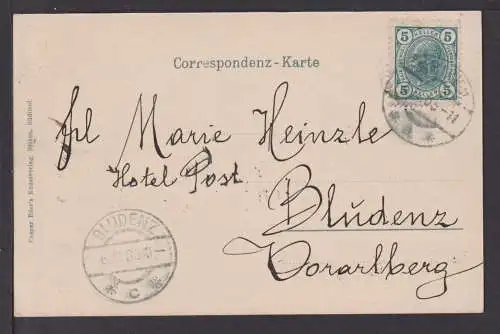 Correspondenz-Karte
5 HELLER 5
Frl Marie Heinzle
Hotel Post
Bludenz
Vorarlberg
BLUDENZ
* C *